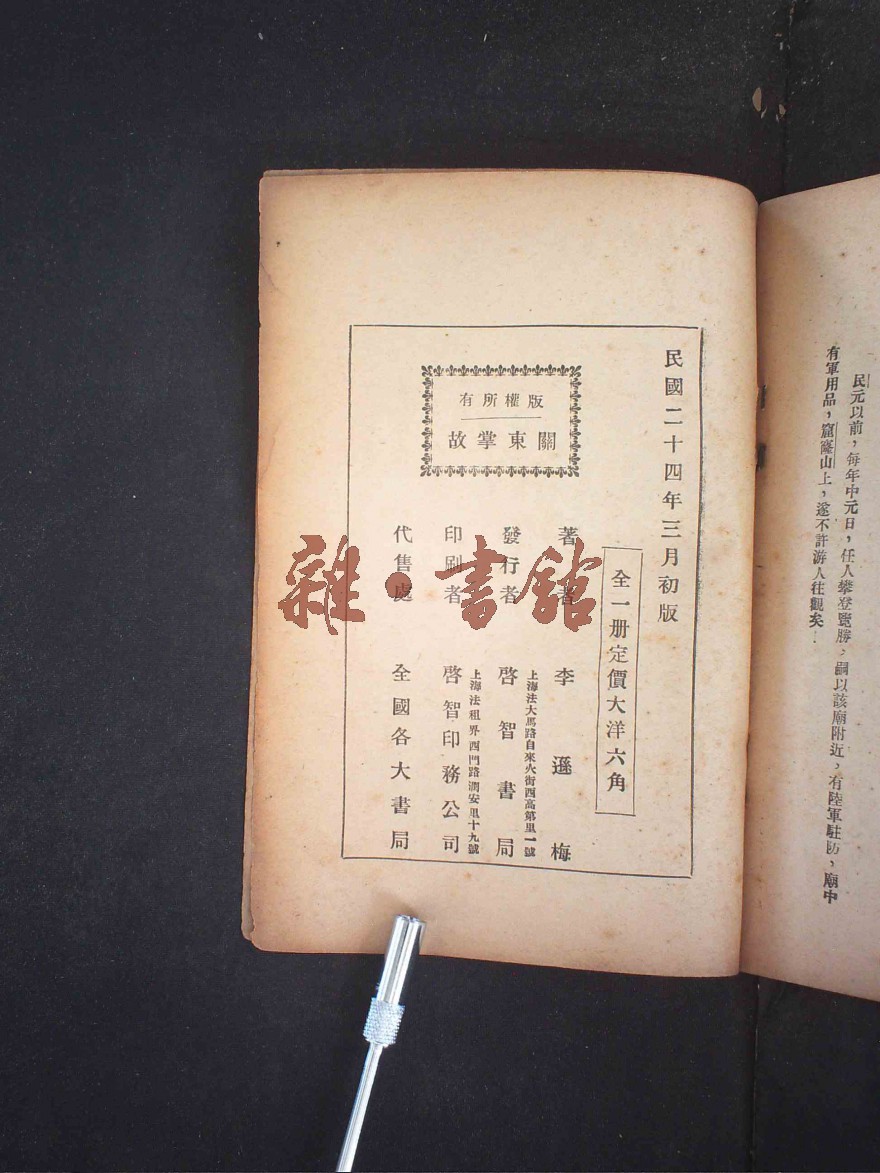 民元以前，每年中元日，任人攀登覽勝，嗣以該廟附近，有陸軍駐防，廟中
有軍用品，窟窿山上，遂不許游人往觀矣．
民國二十四年三月初版
全一册定價大洋六角
著者 李遜梅
上海法大馬路自來火街西高第里一號
發行者 啓智書局
上海法租界西門路潤安里十九號
印刷者 啓智印務公司
代售處 全國各大書局
版權所有
關東掌故
雜·書館